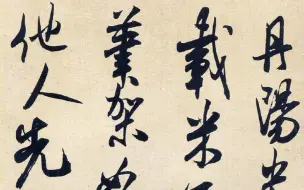 丹陽
載米
筆架
他人先